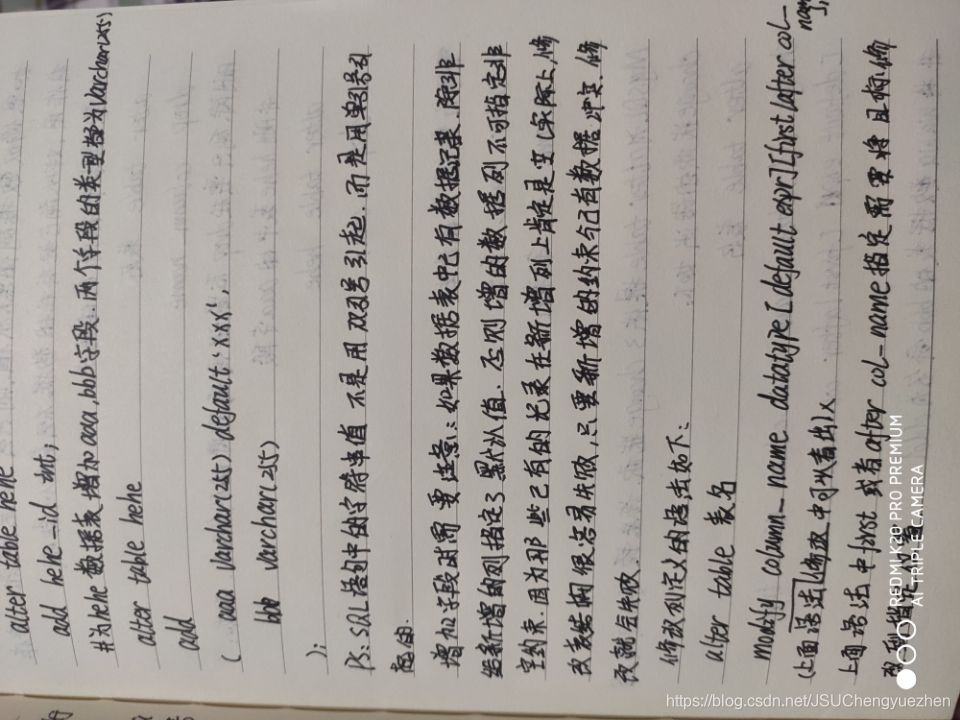 alter table hehe
add hehe_id int;
#为hehe数据表增加aaa,bbb字段,两个字段的类型均为varchar(255)
alter table hehe
add
(aaa varchar(255) default 'xxx',
bbb varchar(255)
);
PS:SQL语句中的字符串值不是用双引号引起,而是用单引号引
起的.
增加字段时需要注意:如果数据表中已有数据记录,除非
给新增的列指定了默认值,否则增的数据列不可指定非
空约束,因为那些已有的记录在新增列上肯定是空(实际上,修
改表结构很容易失败,只要新增的约束与已有数据冲突,修
改就会失败.
修改列定义的语法如下:
alter table 表名
modify column_name datatype [default expr][first|after col_
name];
(上面语法 中可以看出)×
上面语法中first或者after col_name指定需要将目标修
REDMI K20 PRO PREMIUM
AI TRIPLE CAMERA
https://blog.csdn.net/JSUChengyuezhen